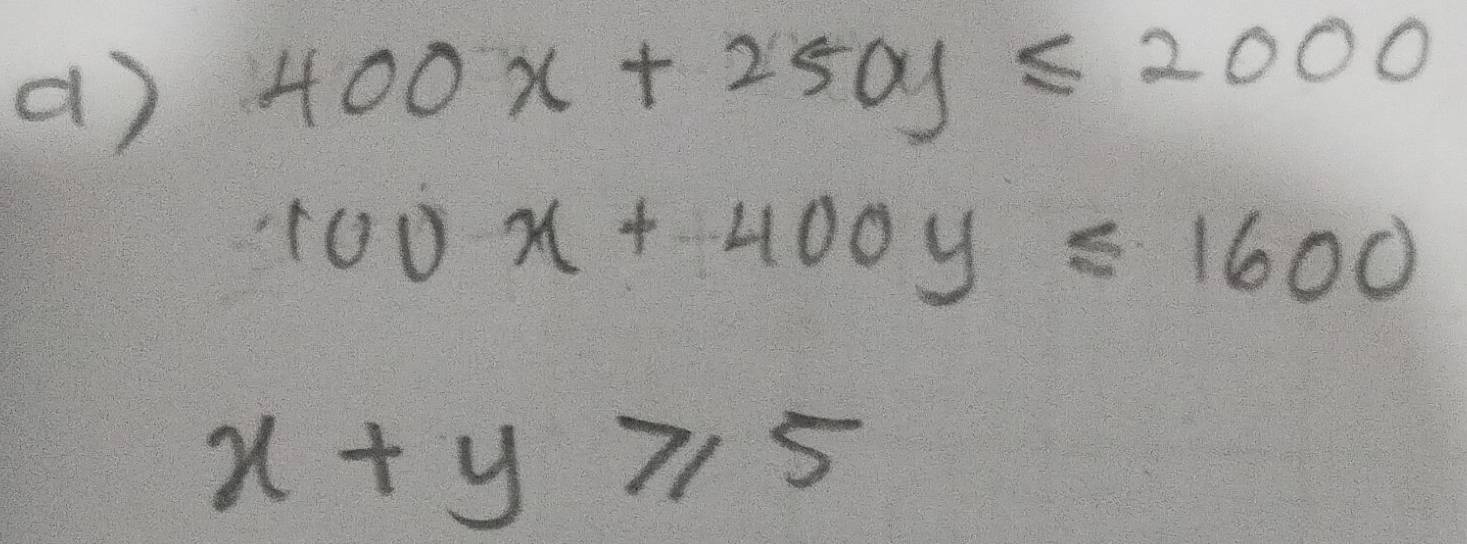 a) 400x + 250y ≤ 2000
100x + 400y ≤ 1600
x + y ⩾ 5